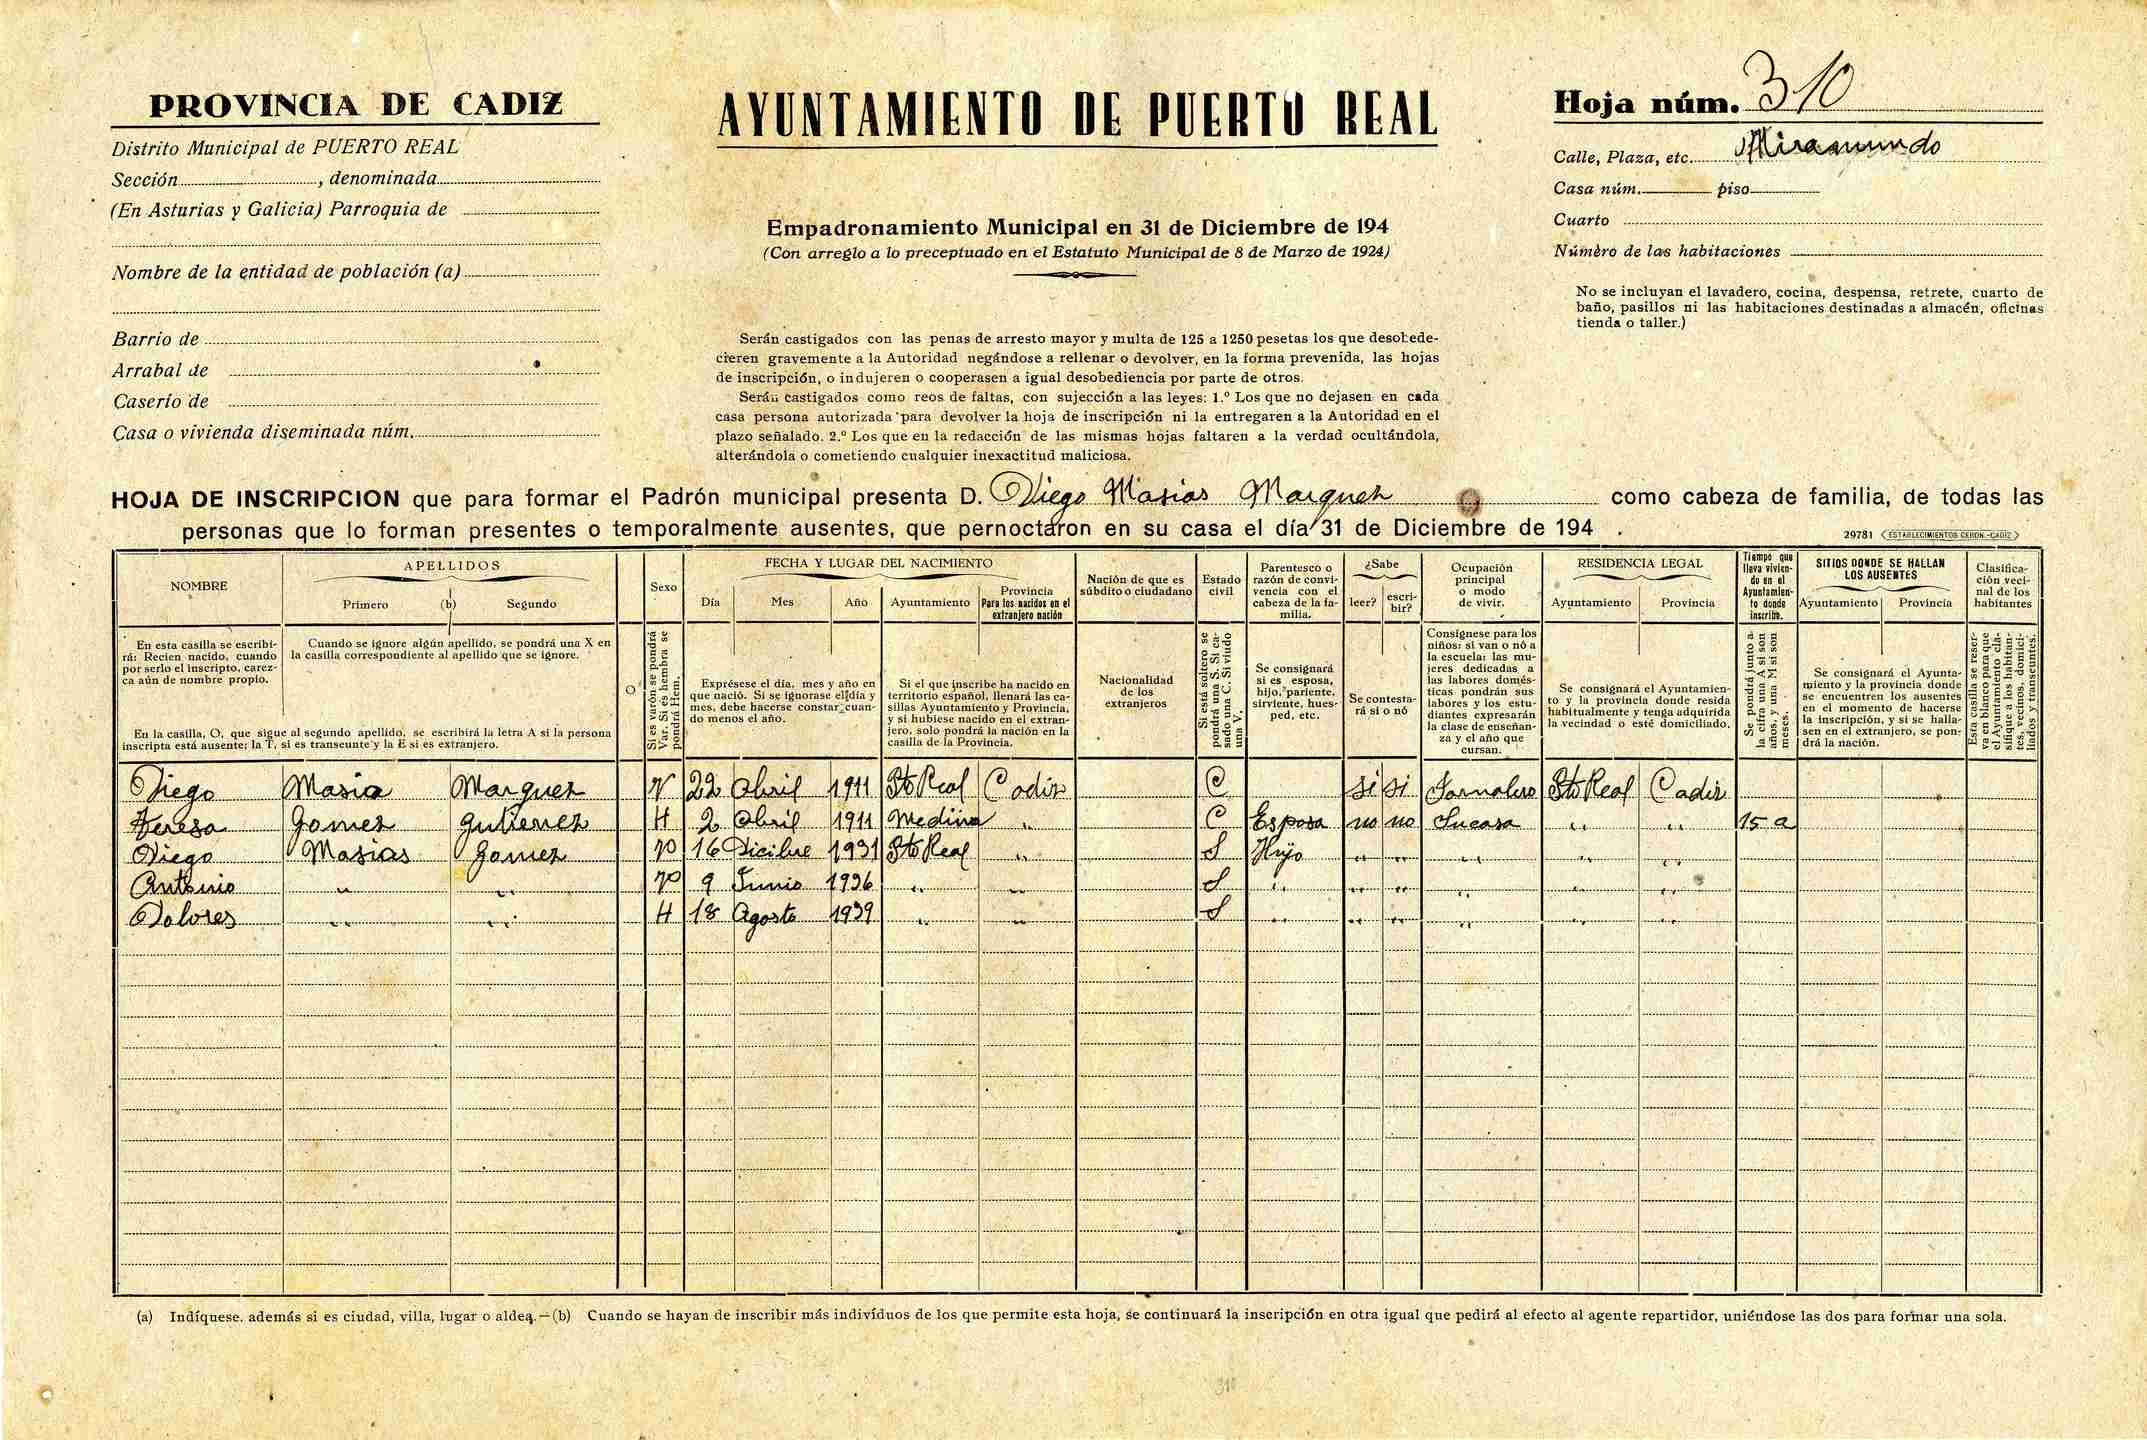 PROVINCIA DE CADIZ
Distrito Municipal de PUERTO REAL
Sección , denominada
(En Asturias y Galicia) Parroquia de
Nombre de la entidad de población (a)
Barrio de
Arrabal de
Caserío de
Casa o vivienda diseminada núm.
AYUNTAMIENTO DE PUERTO REAL
Empadronamiento Municipal en 31 de Diciembre de 194
(Con arreglo a lo preceptuado en el Estatuto Municipal de 8 de Marzo de 1924)
Serán castigados con las penas de arresto mayor y multa de 125 a 1250 pesetas los que desobede-
cieren gravemente a la Autoridad negándose a rellenar o devolver, en la forma prevenida, las hojas
de inscripción, o indujeren o cooperasen a igual desobediencia por parte de otros.
Serán castigados como reos de faltas, con sujección a las leyes: 1.º Los que no dejasen en cada
casa persona autorizada para devolver la hoja de inscripción ni la entregaren a la Autoridad en el
plazo señalado. 2.º Los que en la redacción de las mismas hojas faltaren a la verdad ocultándola,
alterándola o cometiendo cualquier inexactitud maliciosa.
Hoja núm. 310
Calle, Plaza, etc. Miramundo
Casa núm. piso
Cuarto
Número de las habitaciones
No se incluyan el lavadero, cocina, despensa, retrete, cuarto de
baño, pasillos ni las habitaciones destinadas a almacén, oficinas
tienda o taller.)
HOJA DE INSCRIPCION que para formar el Padrón municipal presenta D. Diego Masias Marquez como cabeza de familia, de todas las
personas que lo forman presentes o temporalmente ausentes, que pernoctaron en su casa el día 31 de Diciembre de 194 .
29781 ESTABLECIMIENTOS CERON.-CADIZ
NOMBRE
APELLIDOS
Primero (b) Segundo
Sexo
FECHA Y LUGAR DEL NACIMIENTO
Día Mes Año Ayuntamiento
Provincia
Para los nacidos en el
extranjero nación
Nación de que es
súbdito o ciudadano
Estado
civil
Parentesco o
razón de convi-
vencia con el
cabeza de la fa-
milia.
¿Sabe
leer?
escri-
bir?
Ocupación
principal
o modo
de vivir.
RESIDENCIA LEGAL
Ayuntamiento Provincia
Tiempo que
lleva vivien-
do en el
Ayuntamien-
to donde
inscribe.
SITIOS DONDE SE HALLAN
LOS AUSENTES
Ayuntamiento Provincia
Clasifica-
ción veci-
nal de los
habitantes
En esta casilla se escribi-
rá: Recien nacido, cuando
por serlo el inscripto, carez-
ca aún de nombre propio.
Cuando se ignore algún apellido, se pondrá una X en
la casilla correspondiente al apellido que se ignore.
En la casilla, O, que sigue al segundo apellido, se escribirá la letra A si la persona
inscripta está ausente; la T, si es transeunte y la E si es extranjero.
O
Si es varón se pondrá
Var. Si es hembra se
pondrá Hem.
Exprésese el día, mes y año en
que nació. Si se ignorase el día y
mes, debe hacerse constar cuan-
do menos el año.
Si el que inscribe ha nacido en
territorio español, llenará las ca-
sillas Ayuntamiento y Provincia,
y si hubiese nacido en el extran-
jero, solo pondrá la nación en la
casilla de la Provincia.
Nacionalidad
de los
extranjeros
Si está soltero se
pondrá una S. Si ca-
sado una C. Si viudo
una V.
Se consignará
si es esposa,
hijo, pariente,
sirviente, hues-
ped, etc.
Se contesta-
rá si o nó
Consígnese para los
niños: si van o nó a
la escuela: las mu-
jeres dedicadas a
las labores domés-
ticas pondrán sus
labores y los estu-
diantes expresarán
la clase de enseñan-
za y el año que
cursan.
Se consignará el Ayuntamien-
to y la provincia donde resida
habitualmente y tenga adquirida
la vecindad o esté domiciliado.
Se pondrá junto a
la cifra una A si son
años, y una M si son
meses.
Se consignará el Ayunta-
miento y la provincia donde
se encuentren los ausentes
en el momento de hacerse
la inscripción, y si se halla-
sen en el extranjero, se pon-
drá la nación.
Esta casilla se reser-
va en blanco para que
el Ayuntamiento cla-
sifique a los habitan-
tes, vecinos, domici-
liados y transeuntes.
Diego Masia Marquez V 22 Abril 1911 Pto Real Cadiz C si si Jornalero Pto Real Cadiz
Teresa Gomez Gutierrez H 2 Abril 1911 Medina " C Esposa no no Sucasa " " 15 a
Diego Masias Gomez V 16 Dicibre 1931 Pto Real " S Hijo " " " " "
Antonio " " V 9 Junio 1936 " " S " " " " " "
Dolores " " H 18 Agosto 1939 " " S " " " " " "
(a) Indíquese. además si es ciudad, villa, lugar o aldea.—(b) Cuando se hayan de inscribir más indivíduos de los que permite esta hoja, se continuará la inscripción en otra igual que pedirá al efecto al agente repartidor, uniéndose las dos para formar una sola.
310